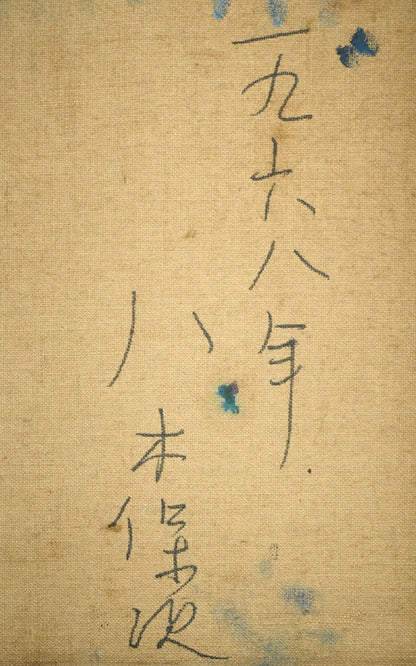 一九六八年
八木保次